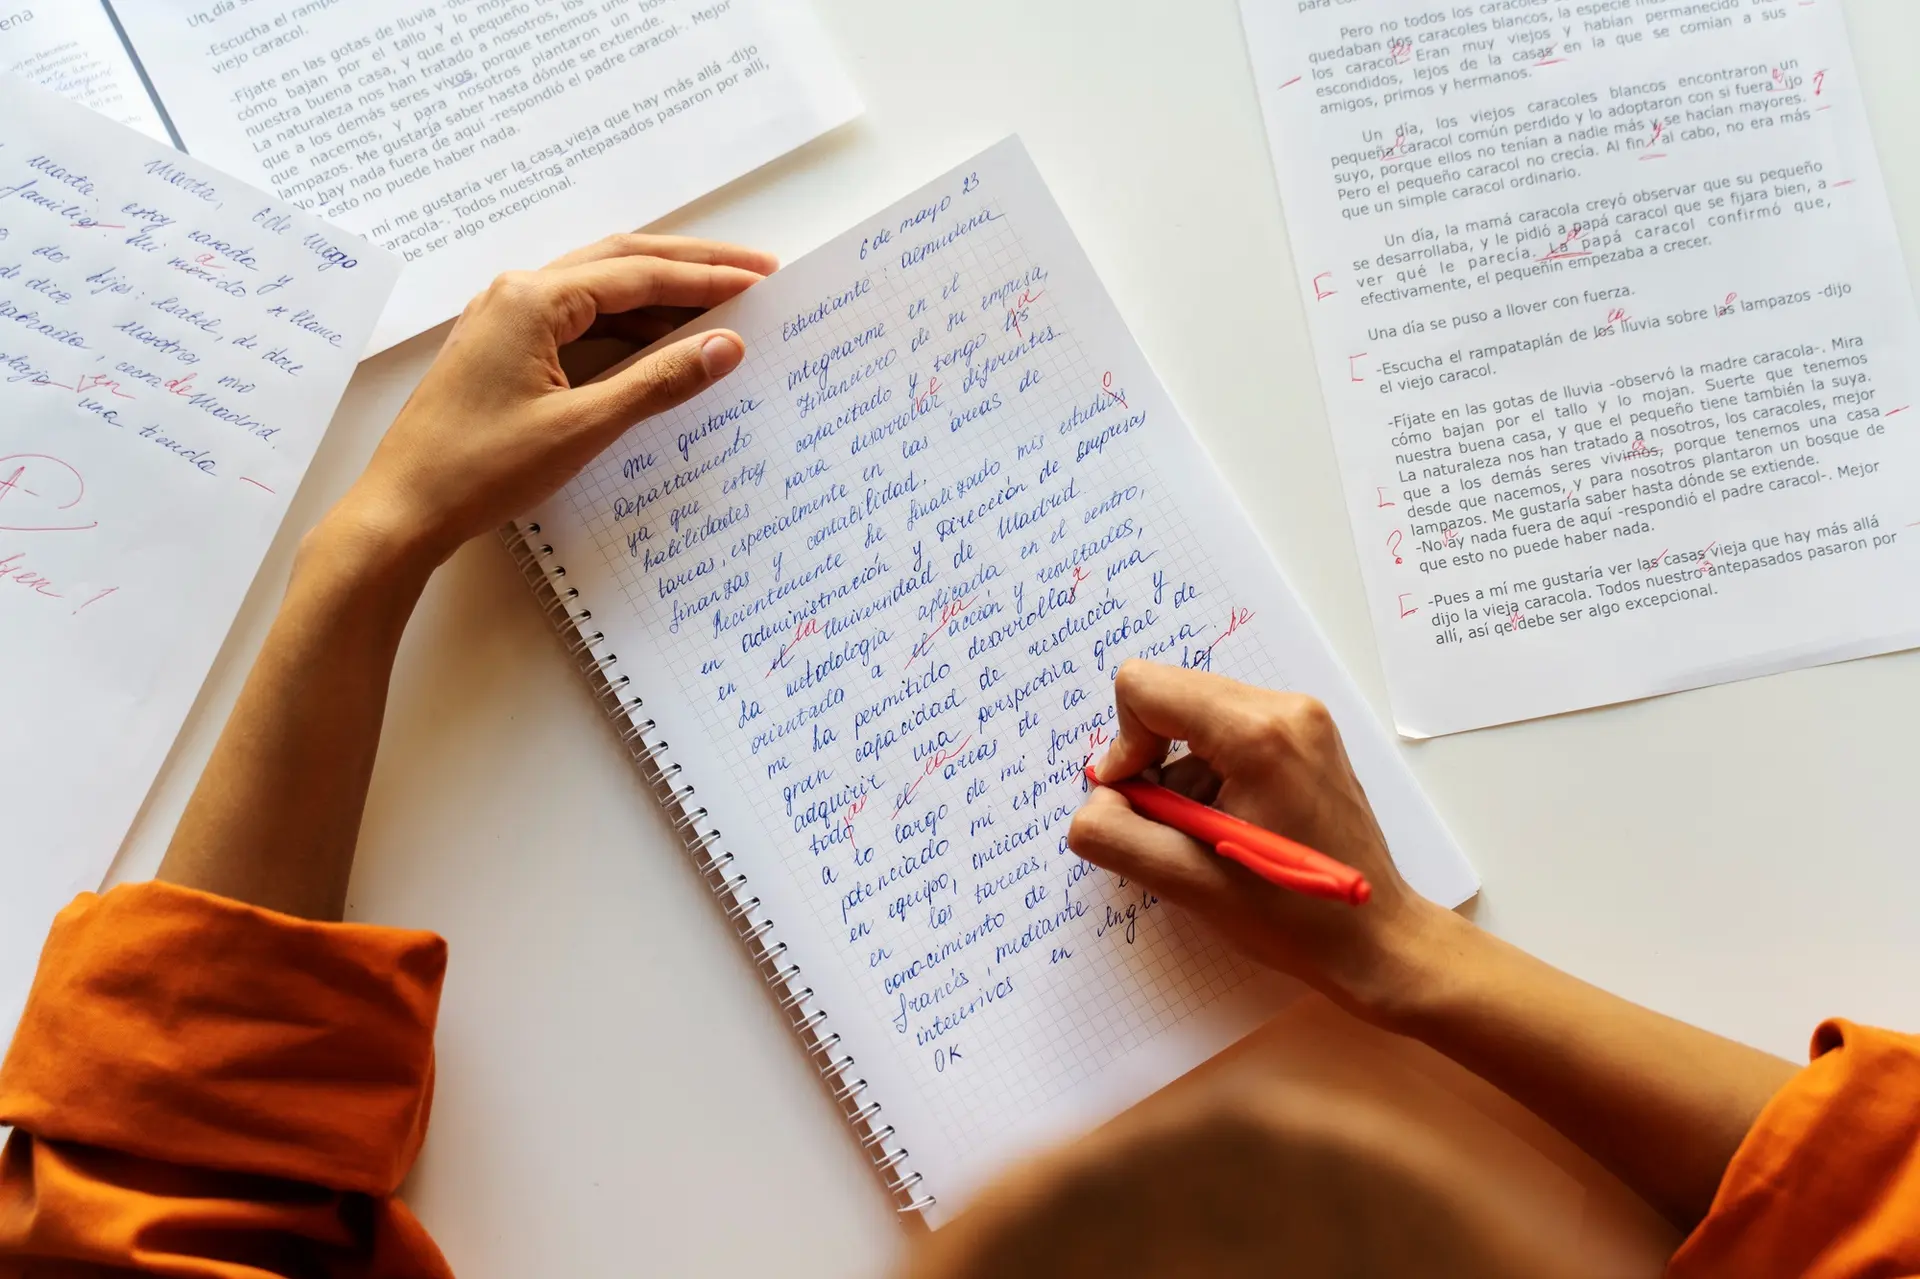 Un día se
-Escucha el rampa
viejo caracol.
-Fíjate en las gotas de lluvia
cómo bajan por el tallo y lo mojan.
nuestra buena casa, y que el pequeño
La naturaleza nos han tratado a nosotros, los
que a los demás seres vivos, porque tenemos una
que nacemos, y para nosotros plantaron un bos
lampazos. Me gustaría saber hasta dónde se extiende.
No hay nada fuera de aquí -respondió el padre caracol-. Mejor
esto no puede haber nada.
a mí me gustaría ver la casa vieja que hay más allá -dijo
caracola-. Todos nuestros antepasados pasaron por allí,
be ser algo excepcional.
Marta, 6 de mayo
Marta. estoy casada y
familia. Mi marido se llama
dos hijos: Isabel, de doce
de diez nosotros, vivi
cerca de Madrid.
en una tienda
A-
6 de mayo 23
Estudiante: Almudena
Me gustaria integrarme en el
Departamento Financiero de su empresa,
ya que estoy capacitado y tengo los a
habilidades para desarrolar diferentes
tareas, especialmente en las áreas de
finanzas y contabilidad.
Recientemente he finalizado mis estudios o
en Administración y Dirección de Empresas
en el la Universidad de Madrid
La metodología aplicada en el centro,
orientada a el la acción y resultados,
me ha permitido desarrollas r una
gran capacidad de resolución y
adquirir una perspectiva global de
todo as el la areas de la empresa.
a lo largo de mi formac hay he
potenciado mi espiritu
en equipo, iniciativa
en las tareas, a
conocimiento de idi
francés, mediante
intensivos en Ingl
OK
Pero no todos los caracoles blancos, la especie más
quedaban dos caracoles blancos,
los caracol. Eran muy viejos y habían permanecido
escondidos, lejos de la casas en la que se comían a sus
amigos, primos y hermanos.
Un día, los viejos caracoles blancos encontraron un
pequeña caracol común perdido y lo adoptaron con si fuera ijo
suyo, porque ellos no tenían a nadie más y se hacían mayores.
Pero el pequeño caracol no crecía. Al fin y al cabo, no era más
que un simple caracol ordinario.
Un día, la mamá caracola creyó observar que su pequeño
se desarrollaba, y le pidió a papá caracol que se fijara bien, a
ver qué le parecía. La papá caracol confirmó que,
efectivamente, el pequeñin empezaba a crecer.
Una día se puso a llover con fuerza.
-Escucha el rampataplán de los la lluvia sobre las lampazos -dijo
el viejo caracol.
-Fíjate en las gotas de lluvia -observó la madre caracola-. Mira
cómo bajan por el tallo y lo mojan. Suerte que tenemos
nuestra buena casa, y que el pequeño tiene también la suya.
La naturaleza nos han tratado a nosotros, los caracoles, mejor
que a los demás seres vivimos, porque tenemos una casa
desde que nacemos, y para nosotros plantaron un bosque de
lampazos. Me gustaría saber hasta dónde se extiende.
-No ay nada fuera de aquí -respondió el padre caracol-. Mejor
que esto no puede haber nada.
-Pues a mí me gustaría ver las casas vieja que hay más allá
dijo la vieja caracola. Todos nuestro antepasados pasaron por
allí, así qe debe ser algo excepcional.